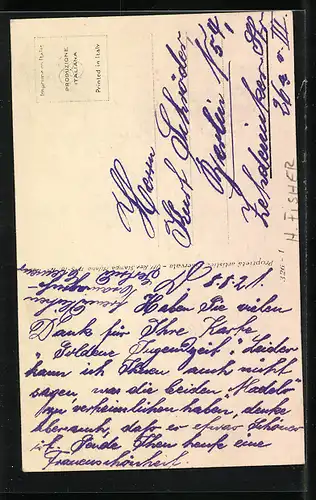 Imprimé en Italie
PRODUZIONE
ITALIANA
Printed in Italy
Herrn
Kurt Schröder
Berlin
Zehdenicker Str.
Proprietà artistica riservata
326 - 1
H. FISHER
D. 5.5.21.
Haben Sie vielen
Dank für Ihre Karte
„Goldene Jugendzeit“. Leider
kann ich Ihnen auch nicht
sagen, was die beiden „Madels“
zu verheimlichen haben, denke
aber auch, daß es etwas Schönes
ist. Sende Ihnen heute eine
Frauenschönheit.